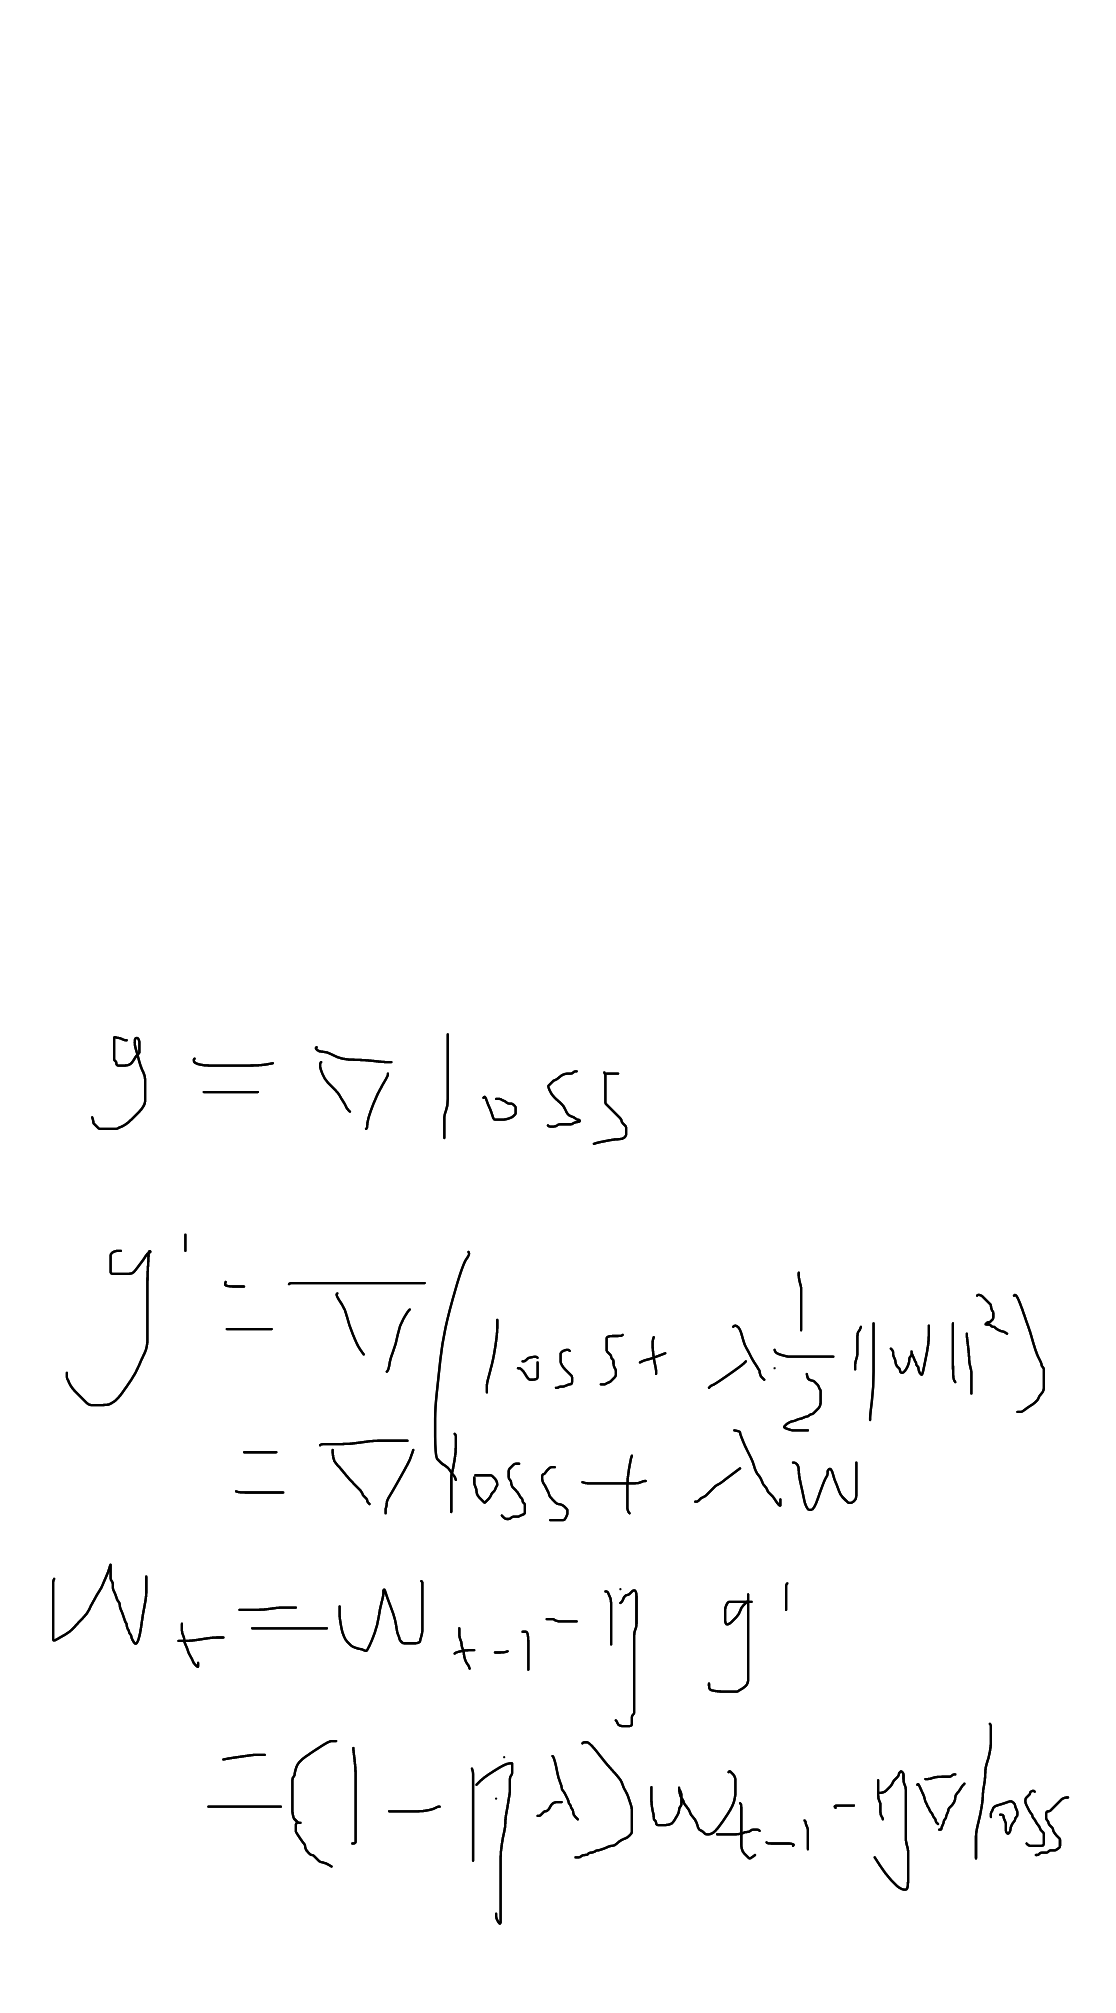 g = ∇ loss
g' = ∇(loss + λ 1/2 ||w||²)
= ∇loss + λw
w_t = w_{t-1} - η g'
= (1 - ηλ)w_{t-1} - η∇loss